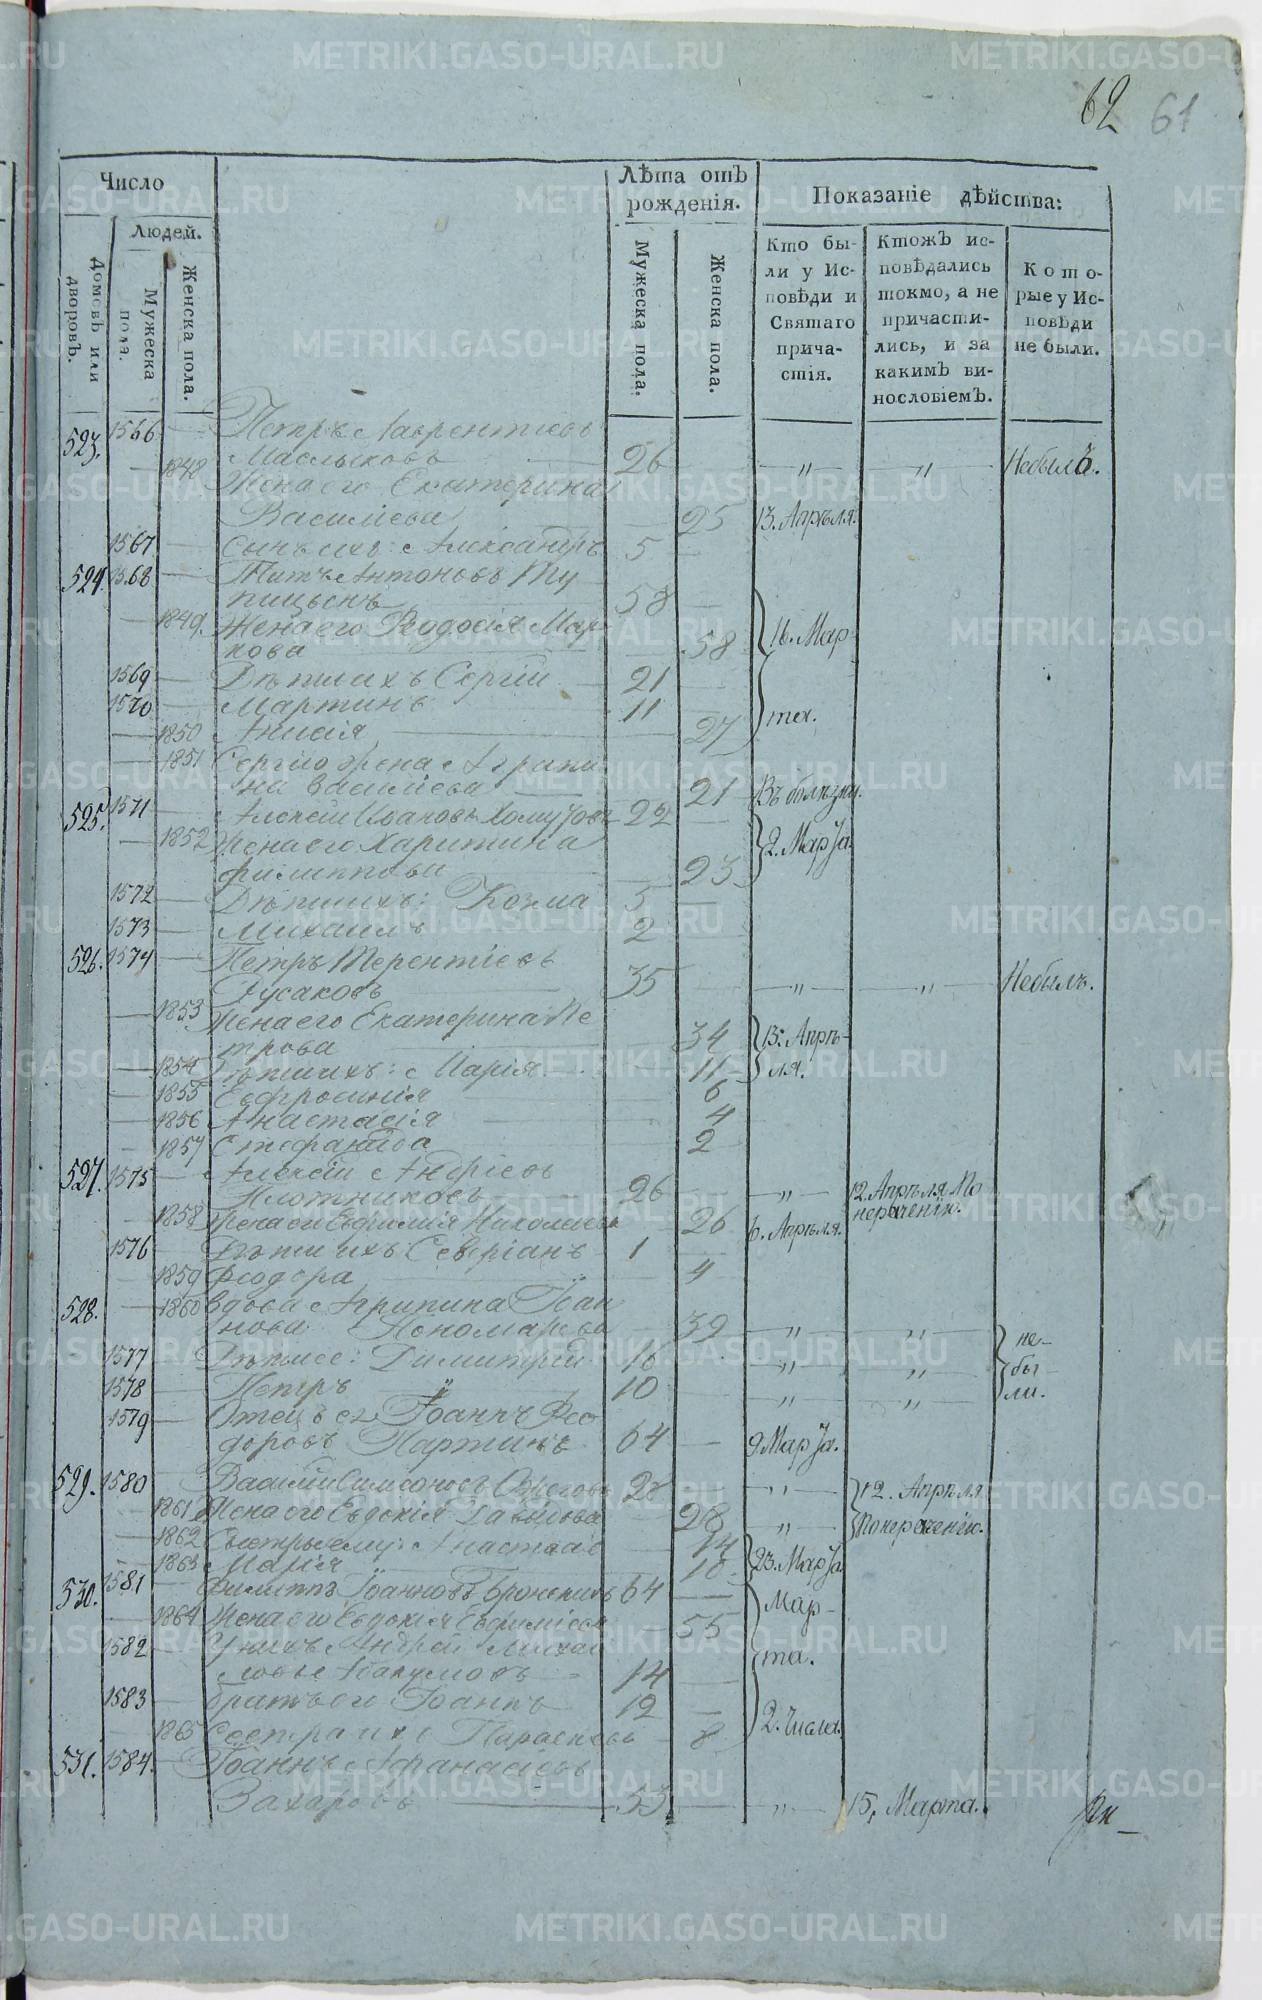 62 61
Число
Людей.
Домовъ или дворовъ.
Мужеска пола.
Женска пола.
Лѣта отъ рожденія.
Мужеска пола.
Женска пола.
Показаніе дѣйства:
Кто бы-
ли у Ис-
повѣди и
Святаго
прича-
стія.
Ктожъ ис-
повѣдались
токмо, а не
причасти-
лись, и за
какимъ ви-
нословіемъ.
Кото-
рые у Ис-
повѣди
не были.
523. 1566 Петръ Лаврентіевъ
Маслыковъ 26 — „ — „ — Небылъ.
1848 Жена его Екатерина
Василіева 25 13. Апрѣля.
1567 Сынъ ихъ: Александръ 5
524. 1568 Титъ Антоновъ Ту
пицынъ 58
1849. Жена его Ѳеодосія Мар-
кова 58 16. Мар-
1569 Дѣти ихъ Сергій 21
1570 Мартинъ 11 та.
1850 Анисія 27
1851 Сергію жена Агрипи
на Василіева 21 Въ болѣзни.
525. 1571 Алексій Ивановъ 22
1852 Жена его Харитина 2. Марта.
Филиппова 23
1572 Дѣти ихъ: Козма 5
1573 Михаилъ 2
526. 1574 Петръ Терентіевъ
Русаковъ 35 — „ — „ — Небылъ.
1853 Жена его Екатерина Пе
трова 34 13. Апрѣ-
1854 Дѣти ихъ: Марія 11 ля.
1855 Евфросинія 6
1856 Анастасія 4
1857 Стефанида 2
527. 1575 Алексій Андріевъ
Плотниковъ 26 — „ — 12. Апрѣля По
нерачению.
1858 Жена его Евфимія Николаева 26 6. Апрѣля.
1576 Дѣти ихъ Северіанъ 1
1859 Ѳеодора 4
528. 1860 Вдова Агрипина Іоан
нова Пономарева 39 — „ — „ — не-
1577 Дѣти ее: Димитрій 16 „ „ бы-
1578 Петръ „ 10 „ „ ли.
1579 Отецъ ея Іоаннъ Ѳео
доровъ Партинъ 64 9 Марта.
529. 1580 Василій Симсоновъ 28 „ 12. Апрѣля
1861 Жена его Евдокія Давыдова 28 „ Понерачению.
1862 Сестры ему: Анастасія 14 23. Марта
1863 Марія 10.
530. 1581 Филиппъ Іоанновъ 64 Мар-
1864 Жена его Евдокія Евфиміева 55
1582 Внукъ Андрей Михай та.
ловъ 14
1583 братъ его Іоаннъ 12
1865 Сестра ихъ Параскева 8 2. Числа.
531. 1584. Іоаннъ Афанасіевъ
Захаровъ 53 — „ — 15, Марта.